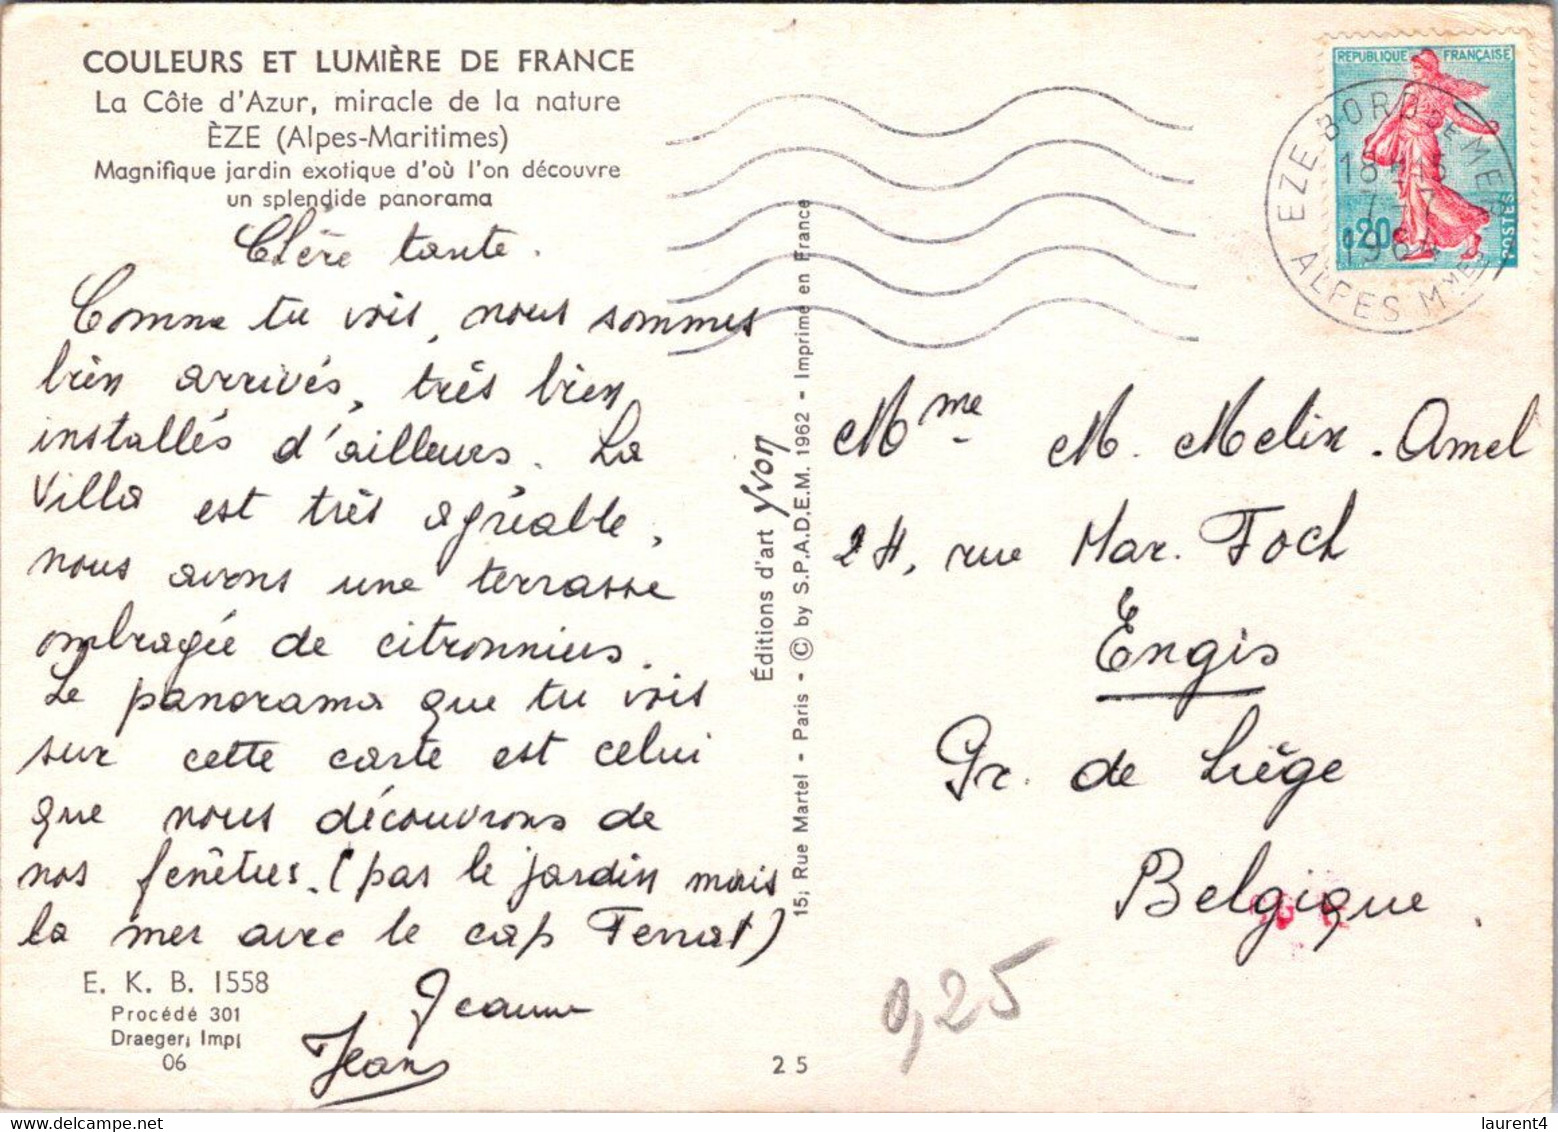 COULEURS ET LUMIÈRE DE FRANCE
La Côte d'Azur, miracle de la nature
ÈZE (Alpes-Maritimes)
Magnifique jardin exotique d'où l'on découvre
un splendide panorama
Chère tante.
Comme tu vois, nous sommes
bien arrivés, très bien
installés d'ailleurs. La
Villa est très agréable,
nous avons une terrasse
ombragée de citronniers.
Le panorama que tu vois
sur cette carte est celui
que nous découvrons de
nos fenêtres. (pas le jardin mais
la mer avec le cap Ferrat)
Jeanne
Jean
E. K. B. 1558
Procédé 301
Draeger, Imp.
06
Éditions d'art Yvon
15, Rue Martel - Paris - © by S.P.A.D.E.M. 1962 - Imprimé en France
25
REPUBLIQUE FRANÇAISE
0,20
POSTES
EZE BORD DE MER
18H15
7-7
1964
ALPES Mmes
Mme M. Melix-Amel
24, rue Mar. Foch
Engis
Pr. de Liège
Belgique.
0,25
laurent4